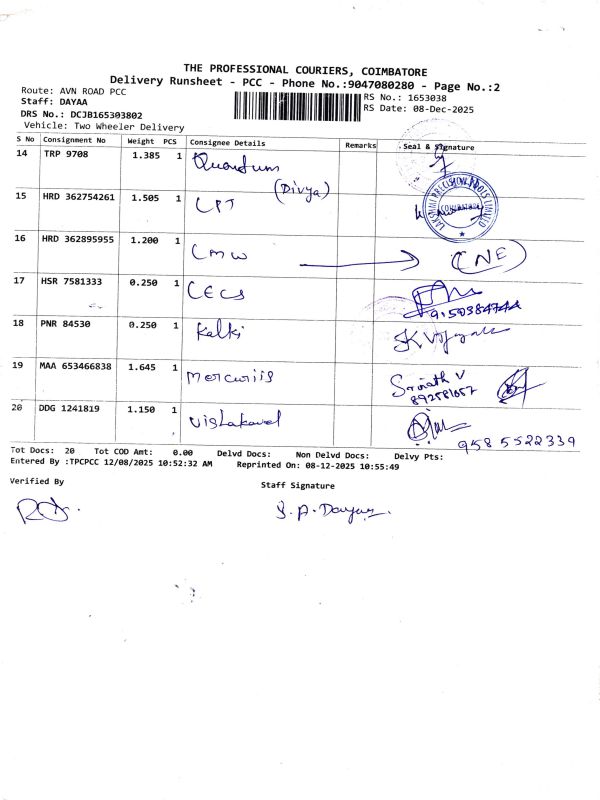 THE PROFESSIONAL COURIERS, COIMBATORE
Delivery Runsheet - PCC - Phone No.:9047080280 - Page No.:2
Route: AVN ROAD PCC
Staff: DAYAA
DRS No.: DCJB165303802
Vehicle: Two Wheeler Delivery
RS No.: 1653038
RS Date: 08-Dec-2025
S No Consignment No Weight PCS Consignee Details Remarks Seal & Signature
14 TRP 9708 1.385 1 Quantum
(Divya)
15 HRD 362754261 1.505 1 LPT
COIMBATORE
16 HRD 362895955 1.200 1 CMW (NE)
17 HSR 7581333 0.250 1 CECS
18 PNR 84530 0.250 1 Kalki
19 MAA 653466838 1.645 1 Mercuriis Srinath V
20 DDG 1241819 1.150 1
958 5522339
Tot Docs: 20 Tot COD Amt: 0.00 Delvd Docs: Non Delvd Docs: Delvy Pts:
Entered By :TPCPCC 12/08/2025 10:52:32 AM Reprinted On: 08-12-2025 10:55:49
Verified By Staff Signature